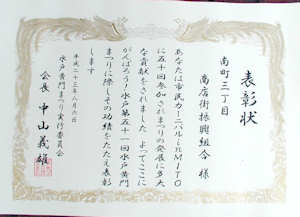 表彰状
南町三丁目
商店街振興組合 様
あなたは市民カーニバルinMITO
に五十回参加されまつりの発展に多大
な貢献をされました よってここに
がんばろう!水戸第五十一回水戸黄門
まつりに際しその功績をたたえ表彰
します
平成二十三年八月六日
水戸黄門まつり実行委員会
会長 中山義雄